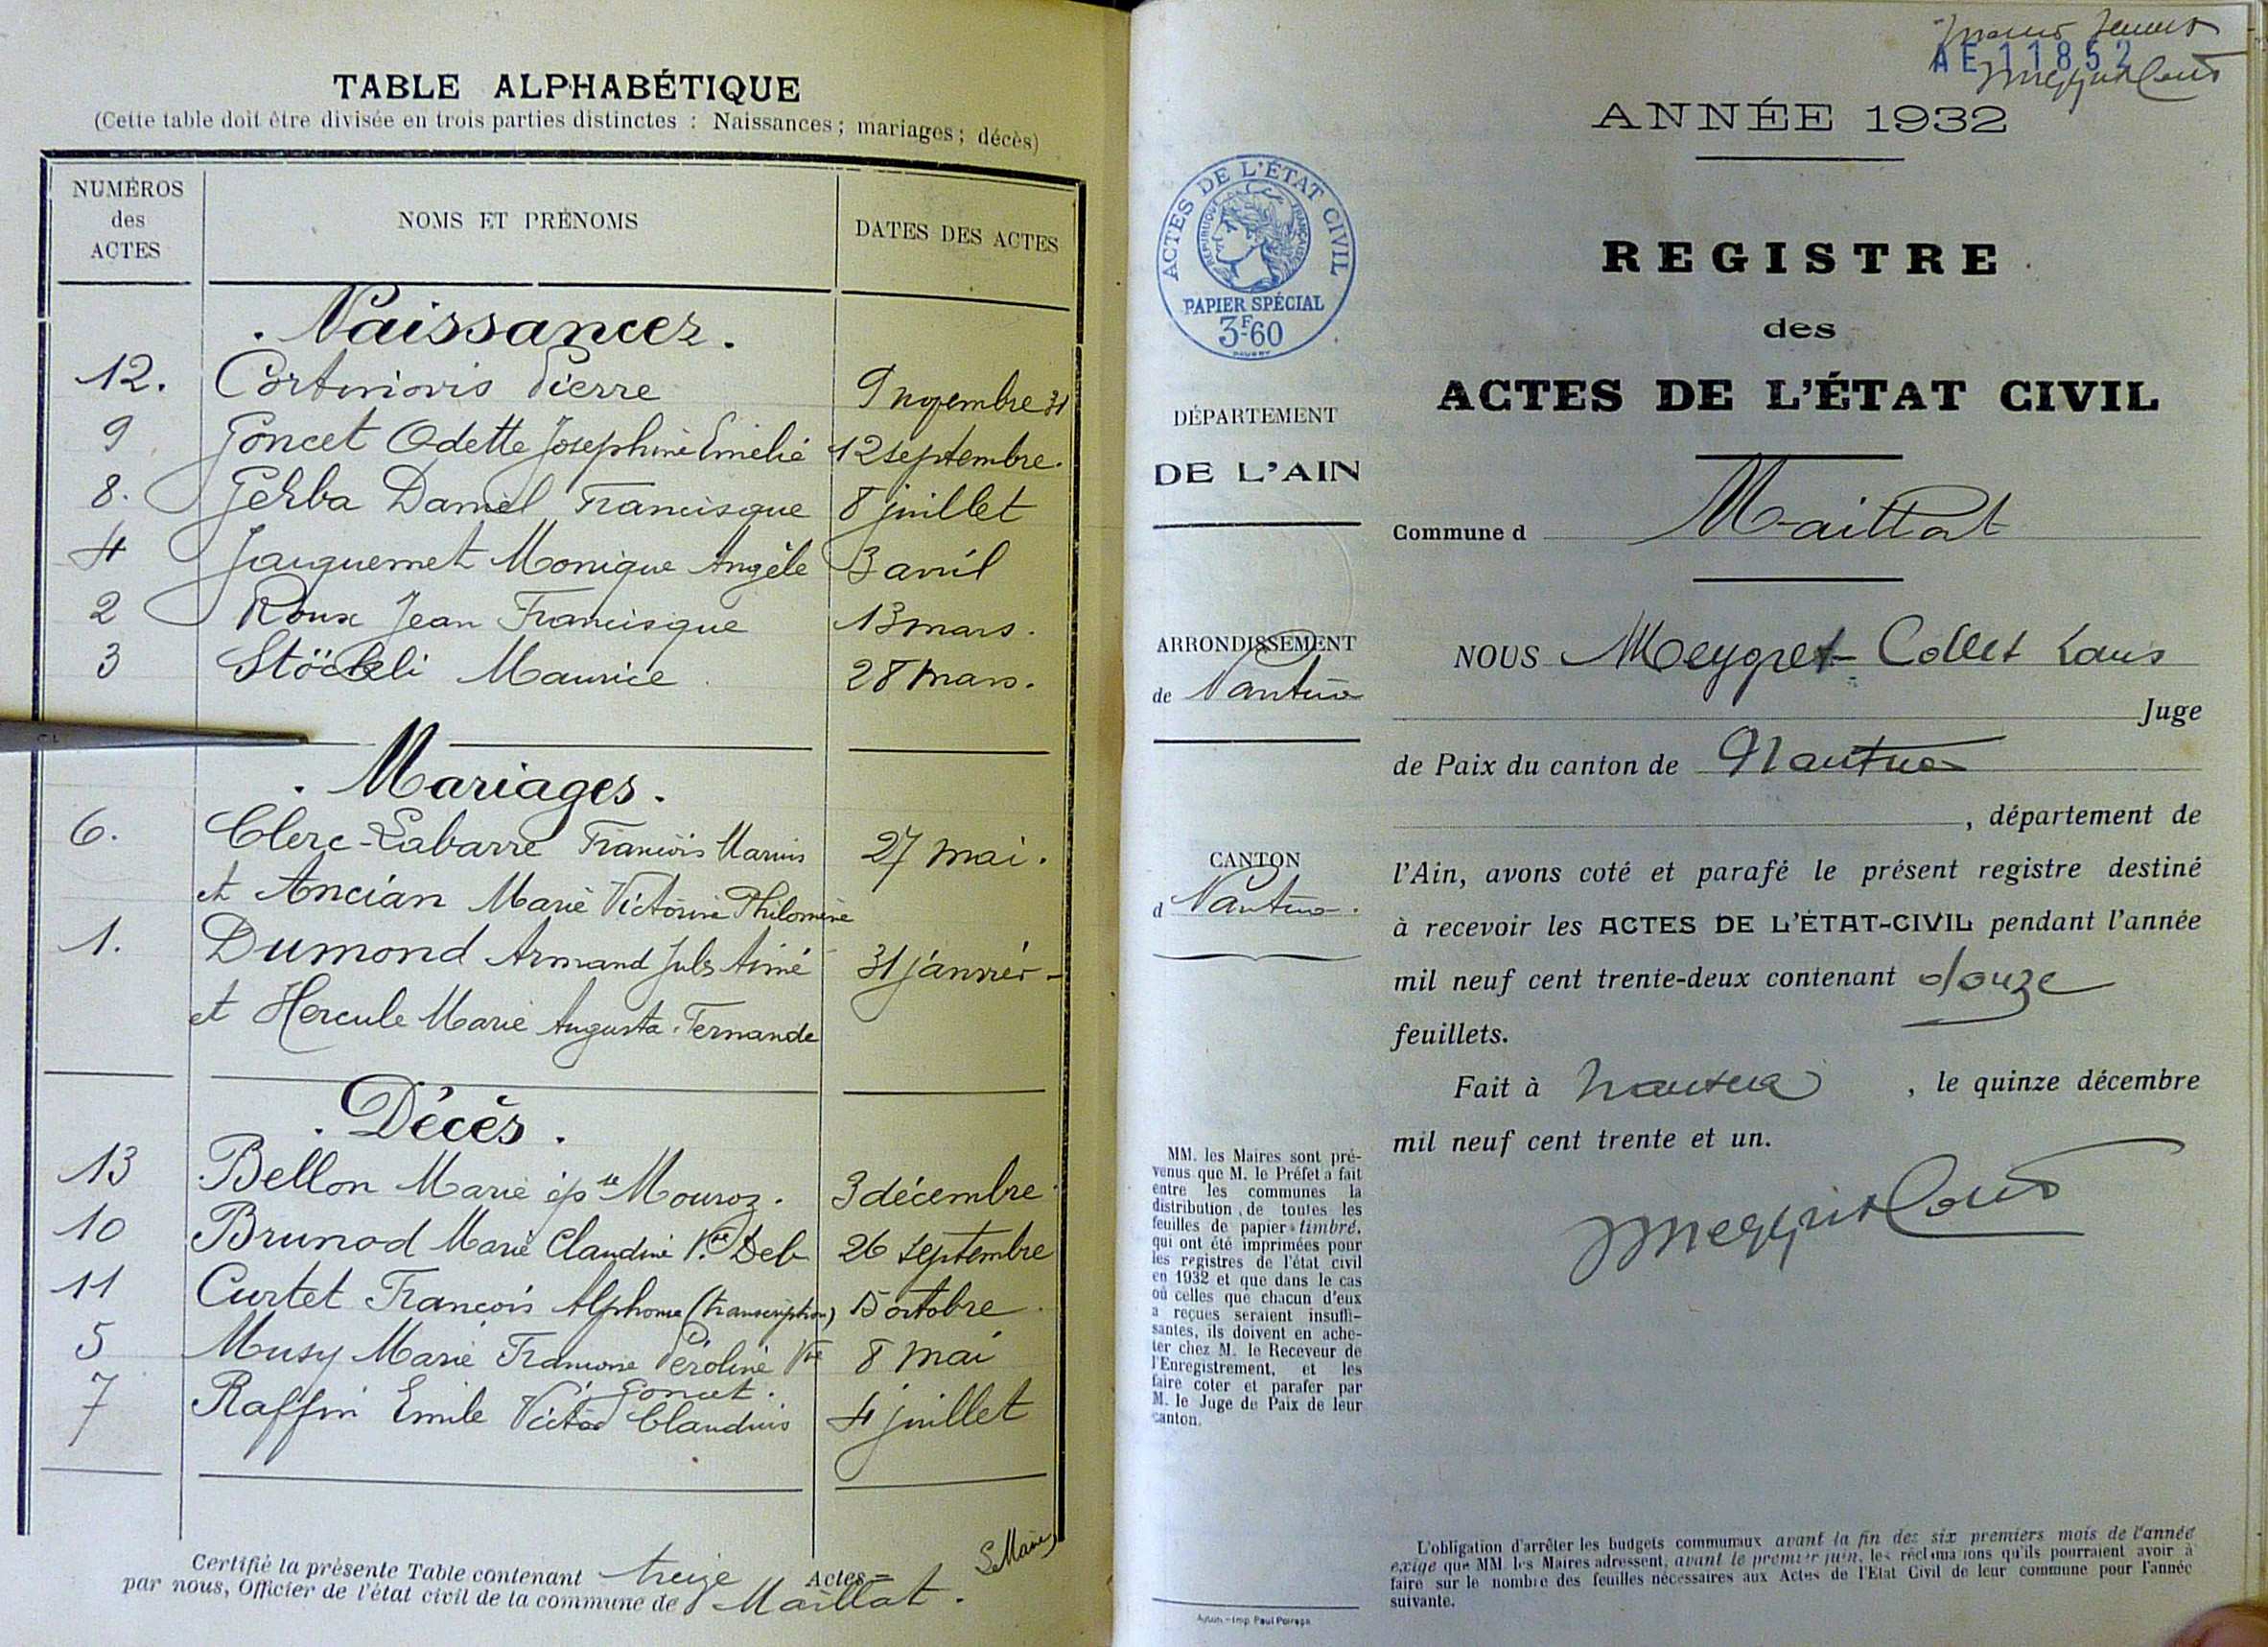 TABLE ALPHABÉTIQUE
(Cette table doit être divisée en trois parties distinctes : Naissances ; mariages ; décès)
NUMÉROS
des
ACTES
NOMS ET PRÉNOMS
DATES DES ACTES
. Naissances .
12. Cortinovis Pierre 9 novembre 31
9 Goncet Odette Joséphine Emélie 12 septembre.
8. Gerba Daniel Francisque 8 juillet
4 Jacquemet Monique Angèle 3 avril
2 Roux Jean Francisque 13 mars.
3 Stöckli Maurice 28 mars.
. Mariages .
6. Clerc-Labarre François Marius 27 mai.
et Ancian Marie Victorine Philomène
1. Dumond Armand Jules Aimé 31 janvier -
et Hercule Marie Augusta Fernande
. Décès .
13 Bellon Marie épse Mouroz. 3 décembre
10 Brunod Marie Claudine Vve Deb 26 septembre
11 Curtet François Alphonse (transcription) 15 octobre.
5 Musy Marie Péroline Vve 8 mai
Goncet.
7 Raffin Emile Victor Claudius 4 juillet
Certifié la présente Table contenant treize Actes =
par nous, Officier de l'état civil de la commune de Maillat.
Le Maire,
AE 11852
ANNÉE 1932
REGISTRE
des
ACTES DE L'ÉTAT CIVIL
ACTES DE L'ÉTAT CIVIL
RÉPUBLIQUE FRANÇAISE
PAPIER SPÉCIAL
3F60
DÉPARTEMENT
DE L'AIN
Commune d Maillat
ARRONDISSEMENT
de Nantua
CANTON
d Nantua.
NOUS Meygret-Collet Louis
Juge
de Paix du canton de Nantua
, département de
l'Ain, avons coté et parafé le présent registre destiné
à recevoir les ACTES DE L'ÉTAT-CIVIL pendant l'année
mil neuf cent trente-deux contenant douze
feuillets.
Fait à Nantua , le quinze décembre
mil neuf cent trente et un.
MM. les Maires sont pré-
venus que M. le Préfet a fait
entre les communes la
distribution de toutes les
feuilles de papier timbré,
qui ont été imprimées pour
les registres de l'état civil
en 1932 et que dans le cas
où celles que chacun d'eux
a reçues seraient insuffi-
santes, ils doivent en ache-
ter chez M. le Receveur de
l'Enregistrement, et les
faire coter et parafer par
M. le Juge de Paix de leur
canton.
L'obligation d'arrêter les budgets communaux avant la fin des six premiers mois de l'année
exige que MM. les Maires adressent, avant le premier juin, les réclamations qu'ils pourraient avoir à
faire sur le nombre des feuilles nécessaires aux Actes de l'Etat Civil de leur commune pour l'année
suivante.